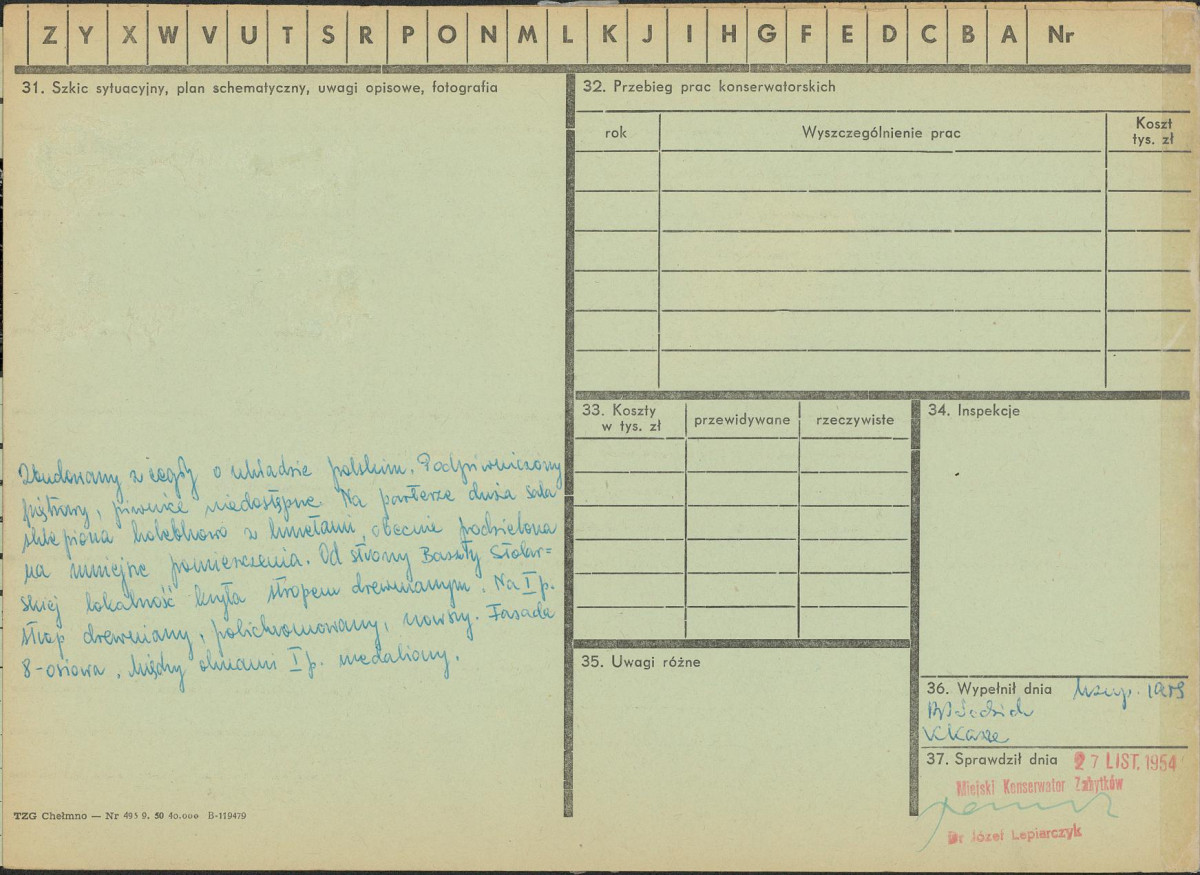 Z Y X W V U T S R P O N M L K J I H G F E D C B A Nr
31. Szkic sytuacyjny, plan schematyczny, uwagi opisowe, fotografia
Zbudowany z cegły o układzie polskim. Podpiwniczony
piętrowy, piwnice niedostępne. Na parterze duża sala
sklepiona kolebkowo z lunetami, obecnie podzielona
na mniejsze pomieszczenia. Od strony Baszty Stolar=
skiej lokalność kryta stropem drewnianym. Na I p.
strop drewniany, polichromowany, nowszy. Fasada
8-osiowa. Między oknami I p. medaliony.
TZG Chełmno — Nr 495 9. 50 40.000 B-119479
32. Przebieg prac konserwatorskich
rok
Wyszczególnienie prac
Koszt
tys. zł
33. Koszty
w tys. zł
przewidywane
rzeczywiste
34. Inspekcje
35. Uwagi różne
36. Wypełnił dnia
37. Sprawdził dnia 27 LIST. 1954
Miejski Konserwator Zabytków
Dr Józef Lepiarczyk